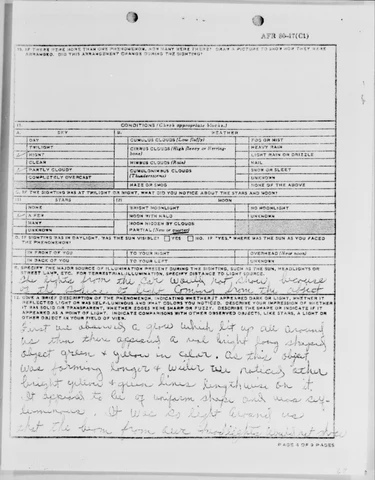 AFR 80-17(C1)
10. IF THERE WERE MORE THAN ONE PHENOMENON, HOW MANY WERE THERE? DRAW A PICTURE TO SHOW HOW THEY WERE
ARRANGED. DID THIS ARRANGEMENT CHANGE DURING THE SIGHTING?
11. CONDITIONS (Check appropriate blocks.)
A. SKY B. WEATHER
DAY CUMULUS CLOUDS (Low fluffy) FOG OR MIST
TWILIGHT CIRRUS CLOUDS (High fleecy or Herring-bone) HEAVY RAIN
NIGHT LIGHT RAIN OR DRIZZLE
CLEAR NIMBUS CLOUDS (Rain) HAIL
PARTLY CLOUDY CUMULONIMBUS CLOUDS (Thunderstorms) SNOW OR SLEET
COMPLETELY OVERCAST UNKNOWN
HAZE OR SMOG NONE OF THE ABOVE
C. IF THE SIGHTING WAS AT TWILIGHT OR NIGHT, WHAT DID YOU NOTICE ABOUT THE STARS AND MOON?
(1) STARS (2) MOON
NONE BRIGHT MOONLIGHT NO MOONLIGHT
A FEW MOON WITH HALO UNKNOWN
MANY MOON HIDDEN BY CLOUDS
UNKNOWN PARTIAL (New or quarter)
D. IF SIGHTING WAS IN DAYLIGHT, WAS THE SUN VISIBLE? YES NO. IF "YES," WHERE WAS THE SUN AS YOU FACED
THE PHENOMENON?
IN FRONT OF YOU TO YOUR RIGHT OVERHEAD (Near noon)
IN BACK OF YOU TO YOUR LEFT UNKNOWN
E. SPECIFY THE MAJOR SOURCE OF ILLUMINATION PRESENT DURING THE SIGHTING, SUCH AS THE SUN, HEADLIGHTS OR
STREET LAMP, ETC. FOR TERRESTRIAL ILLUMINATION, SPECIFY DISTANCE TO LIGHT SOURCE.
lights from the car would not show because
of the coming from the object
12. GIVE A BRIEF DESCRIPTION OF THE PHENOMENON, INDICATING WHETHER IT APPEARED DARK OR LIGHT, WHETHER IT
REFLECTED LIGHT OR WAS SELF-LUMINOUS AND WHAT COLORS YOU NOTICED. DESCRIBE YOUR IMPRESSION OF WHETHER
IT WAS SOLID OR TRANSPARENT, WHETHER EDGES WERE SHARP OR FUZZY. DESCRIBE THE SHAPE OR INDICATE IF IT
APPEARED AS A POINT OF LIGHT. INDICATE COMPARISONS WITH OTHER OBSERVED OBJECTS, LIKE STARS, A LIGHT OR
OTHER OBJECT IN YOUR FIELD OF VIEW.
First we observed a glow which lit up all around
us then there appeared a real bright long shaped
object green & yellow in color. As this object
was forming longer & wider we noticed other
bright yellow & green lines lengthwise on it.
It appeared to be of uniform shape and was self-
luminous. It was so light around us
that the beam from our headlights could not show
PAGE 3 OF 5 PAGES